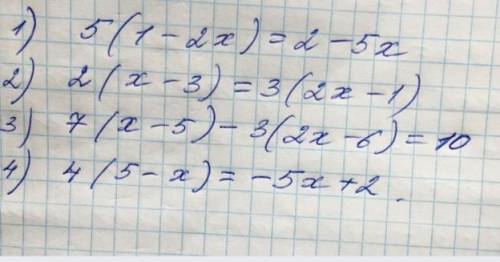 1) 5(1-2x)=2-5x
2) 2(x-3)=3(2x-1)
3) 7(x-5)-3(2x-6)=10
4) 4(5-x)=-5x+2.